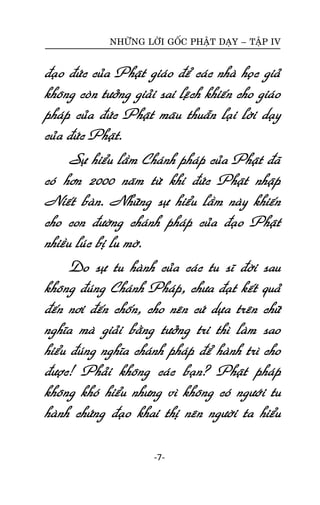 NHỮNG LỜI GỐC PHẬT DẠY – TẬP IV
đạo đức của Phật giáo để các nhà học giả
không còn tưởng giải sai lệch khiến cho giáo
pháp của đức Phật mâu thuẫn lại lời dạy
của đức Phật.
Sự hiểu lầm Chánh pháp của Phật đã
có hơn 2000 năm từ khi đức Phật nhập
Niết bàn. Những sự hiểu lầm này khiến
cho con đường chánh pháp của đạo Phật
nhiều lúc bị lu mờ.
Do sự tu hành của các tu sĩ đời sau
không đúng Chánh Pháp, chưa đạt kết quả
đến nơi đến chốn, cho nên cứ dựa trên chữ
nghĩa mà giải bằng tưởng tri thì làm sao
hiểu đúng nghĩa chánh pháp để hành trì cho
được! Phải không các bạn? Phật pháp
không khó hiểu nhưng vì không có người tu
hành chứng đạo khai thị nên người ta hiểu
-7-